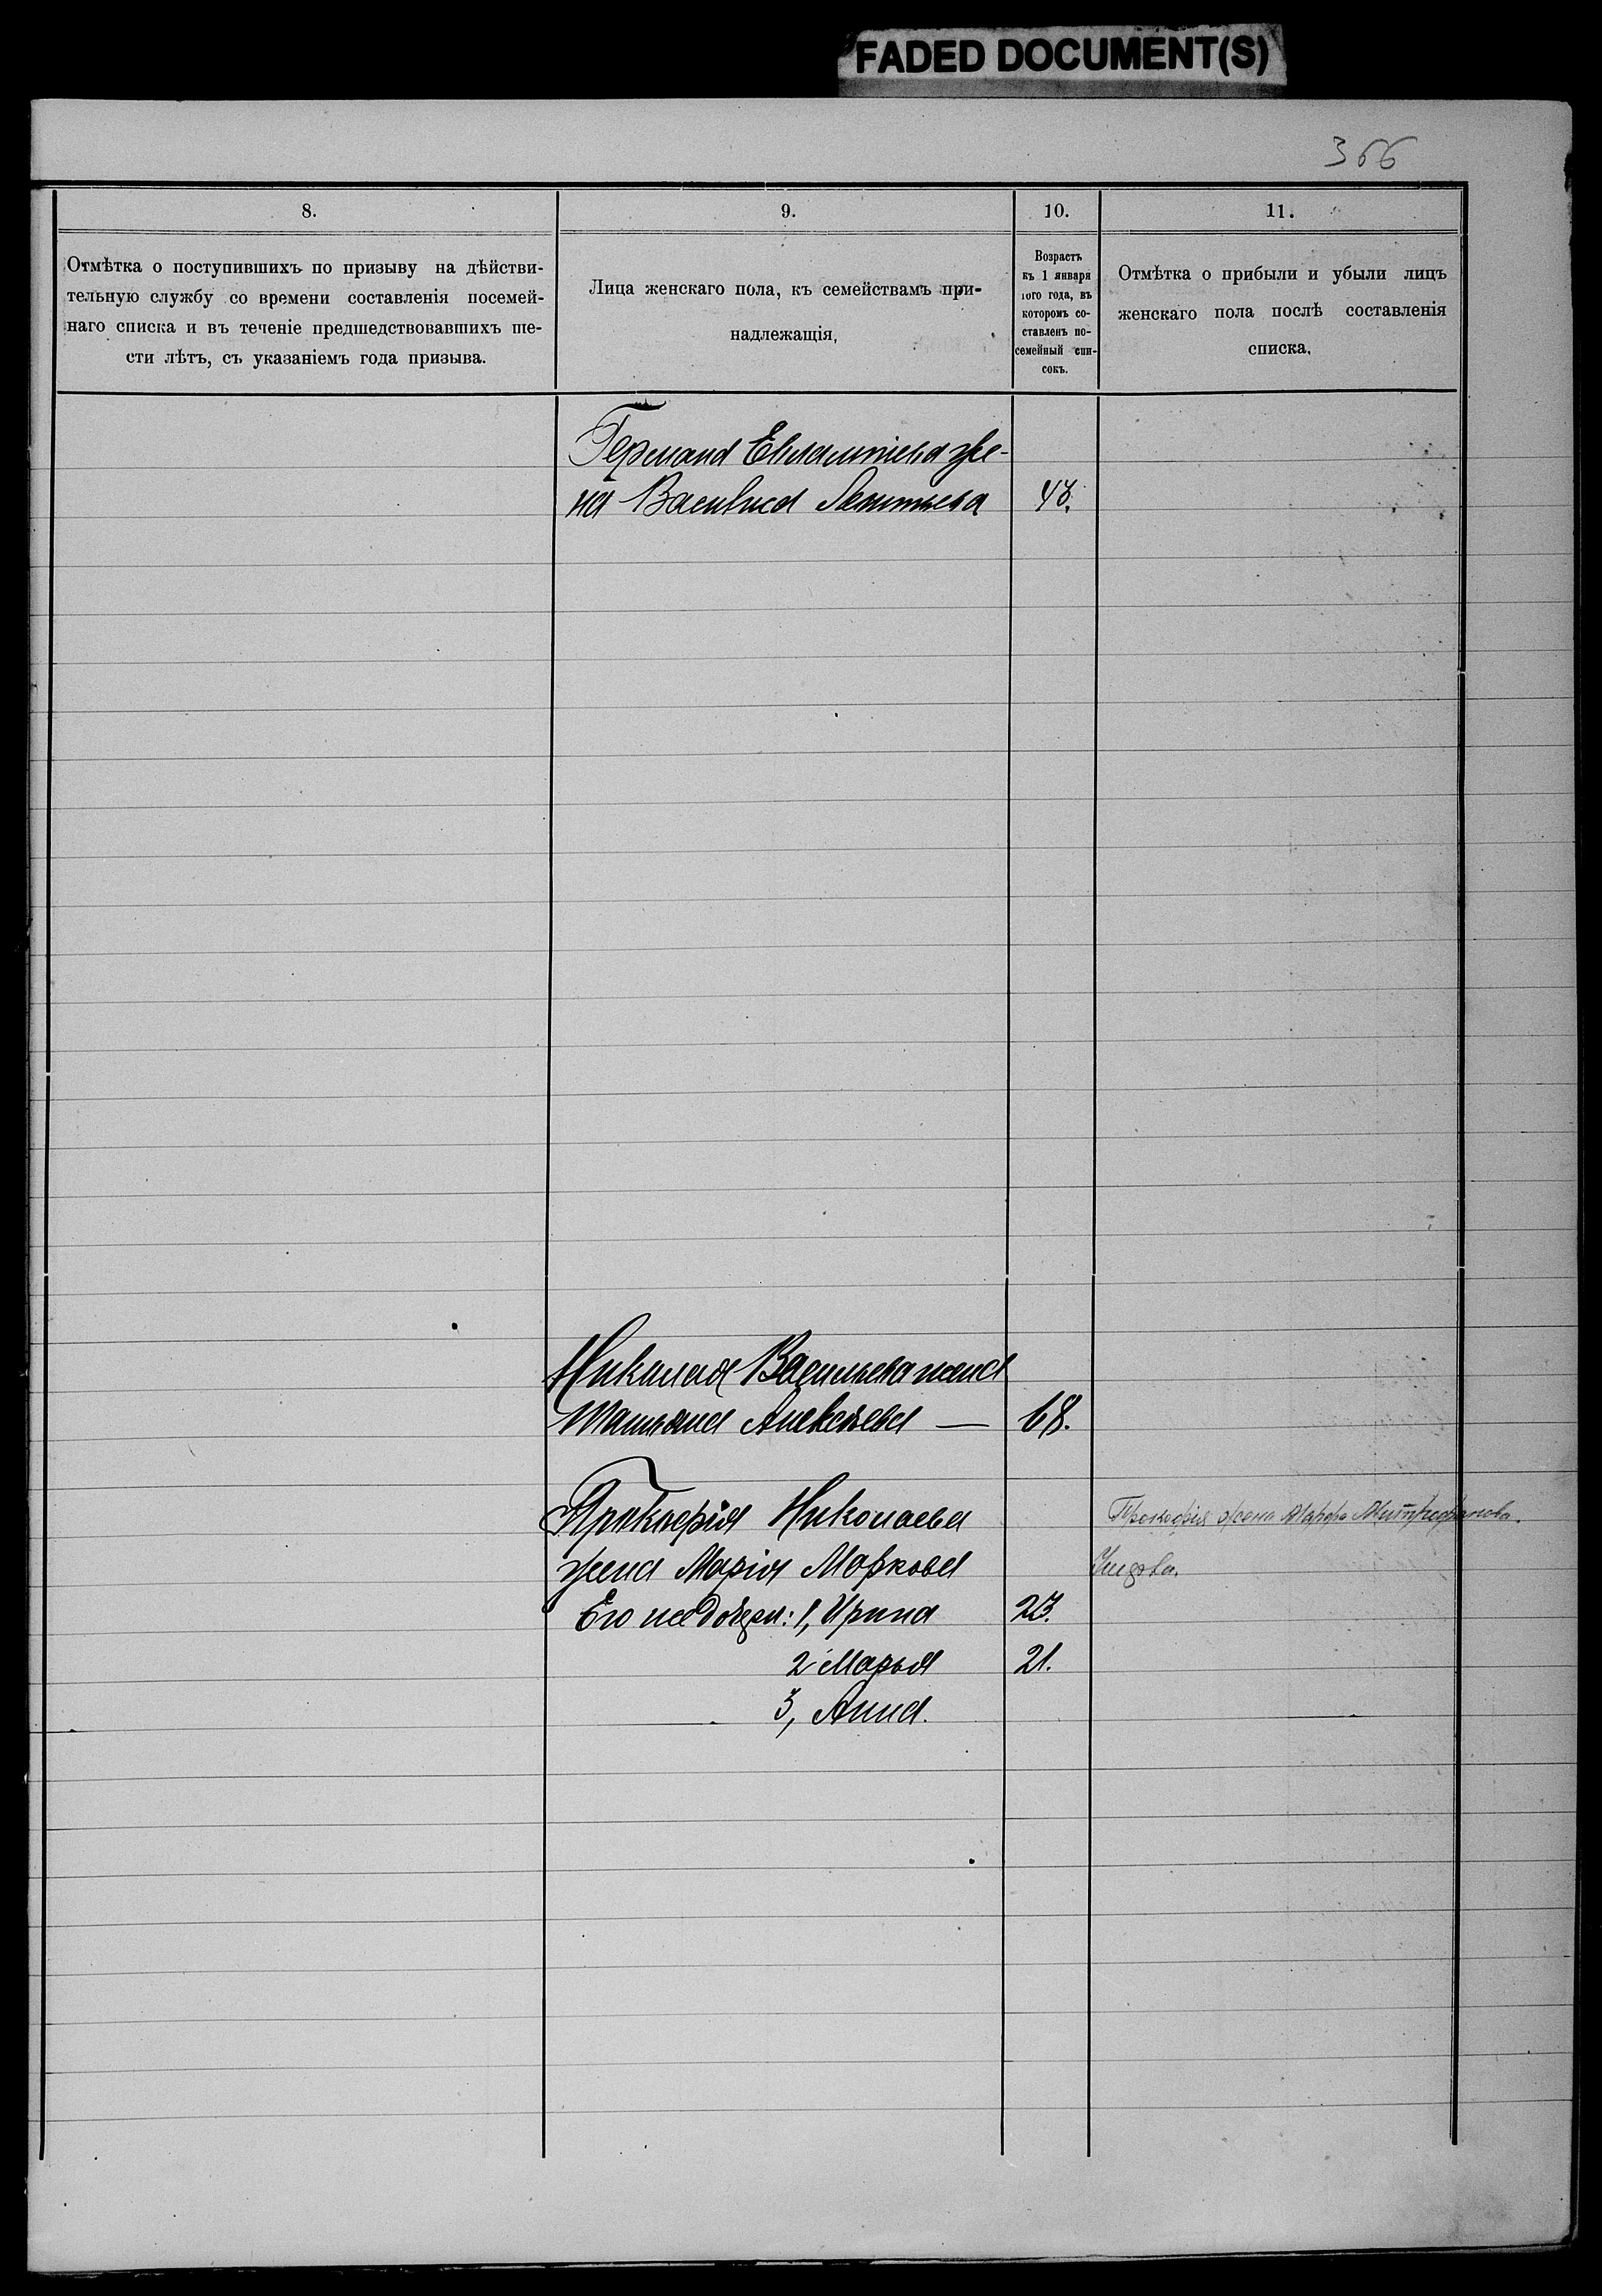 FADED DOCUMENT(S)
366
8.
9.
10.
11.
Отмѣтка о поступившихъ по призыву на дѣйстви-
тельную службу со времени составленія посемей-
наго списка и въ теченіе предшедствовавшихъ ше-
сти лѣтъ, съ указаніемъ года призыва.
Лица женскаго пола, къ семействамъ при-
надлежащія,
Возрастъ
къ 1 января
того года, въ
которомъ со-
ставленъ по-
семейный спи-
сокъ.
Отмѣтка о прибыли и убыли лицъ
женскаго пола послѣ составленія
списка.
Германа Евлампіева же-
на Васильиса Леонтьева 48.
Николая Васильева жена
Татьяна Алексѣева — 68.
Прокофія Николаева
жена Марія Маркова
Его же дочери: 1, Ирина 23.
2 Марья 21.
3, Анна.
Прокофія жена Марфа Митрофанова.